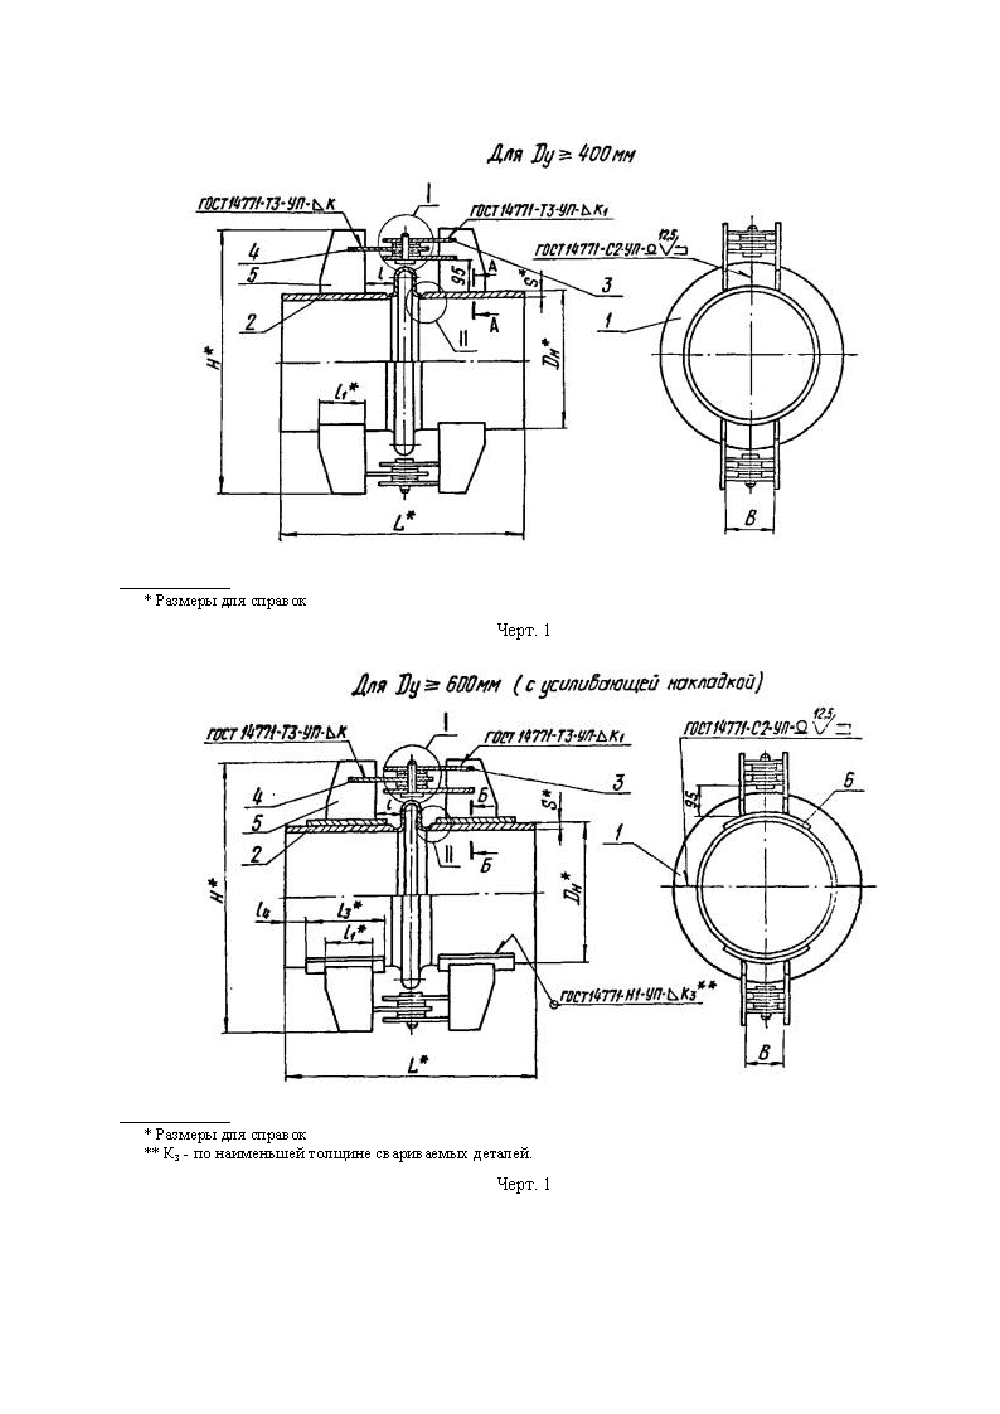 Для Dy ≥ 400мм
I
ГОСТ 14771-Т3-УП-⊿ К
ГОСТ 14771-Т3-УП-⊿ К₁
ГОСТ 14771-С2-УП-Ω 12,5
4
5
2
l
95
А
А
S*
3
1
II
H*
Dн*
l₁*
L*
В
* Размеры для справок
Черт. 1
Для Dy ≥ 600мм (с усиливающей накладкой)
I
ГОСТ 14771-Т3-УП-⊿ К
ГОСТ 14771-Т3-УП-⊿ К₁
ГОСТ 14771-С2-УП-Ω 12,5
4
5
2
l
3
Б
Б
S*
95
6
1
II
H*
Dн*
l₄
l₃*
l₁*
ГОСТ 14771-Н1-УП-⊿ К₃**
L*
В
* Размеры для справок
** К₃ - по наименьшей толщине свариваемых деталей.
Черт. 1